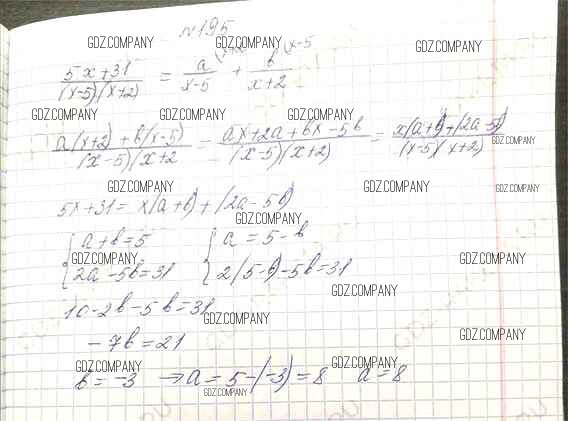 №195
GDZ.COMPANY GDZ.COMPANY GDZ.COMPANY
(5x+31)/((x-5)(x+2)) = a/(x-5) + b/(x+2)
(x-5
GDZ.COMPANY GDZ.COMPANY GDZ.COMPANY
(a(x+2)+b(x-5))/((x-5)(x+2) = (ax+2a+bx-5b)/((x-5)(x+2)) = (x(a+b)+(2a-5b))/((x-5)(x+2))
GDZ.COMPANY
GDZ.COMPANY GDZ.COMPANY GDZ.COMPANY
5x+31=x(a+b)+(2a-5b)
GDZ.COMPANY
{a+b=5 {a=5-b
GDZ.COMPANY GDZ.COMPANY GDZ.COMPANY
2a-5b=31 2(5-b)-5b=31
GDZ.COMPANY
10-2b-5b=31
GDZ.COMPANY
-7b=21
GDZ.COMPANY
GDZ.COMPANY GDZ.COMPANY
b=-3 → a=5-(-3)=8 a=8
GDZ.COMPANY